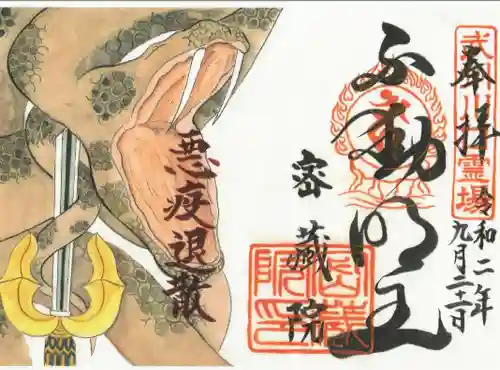 奉拝
武州川霊場
令和二年
九月二十二日
不動明王
密蔵院
密蔵院印
悪疫退散